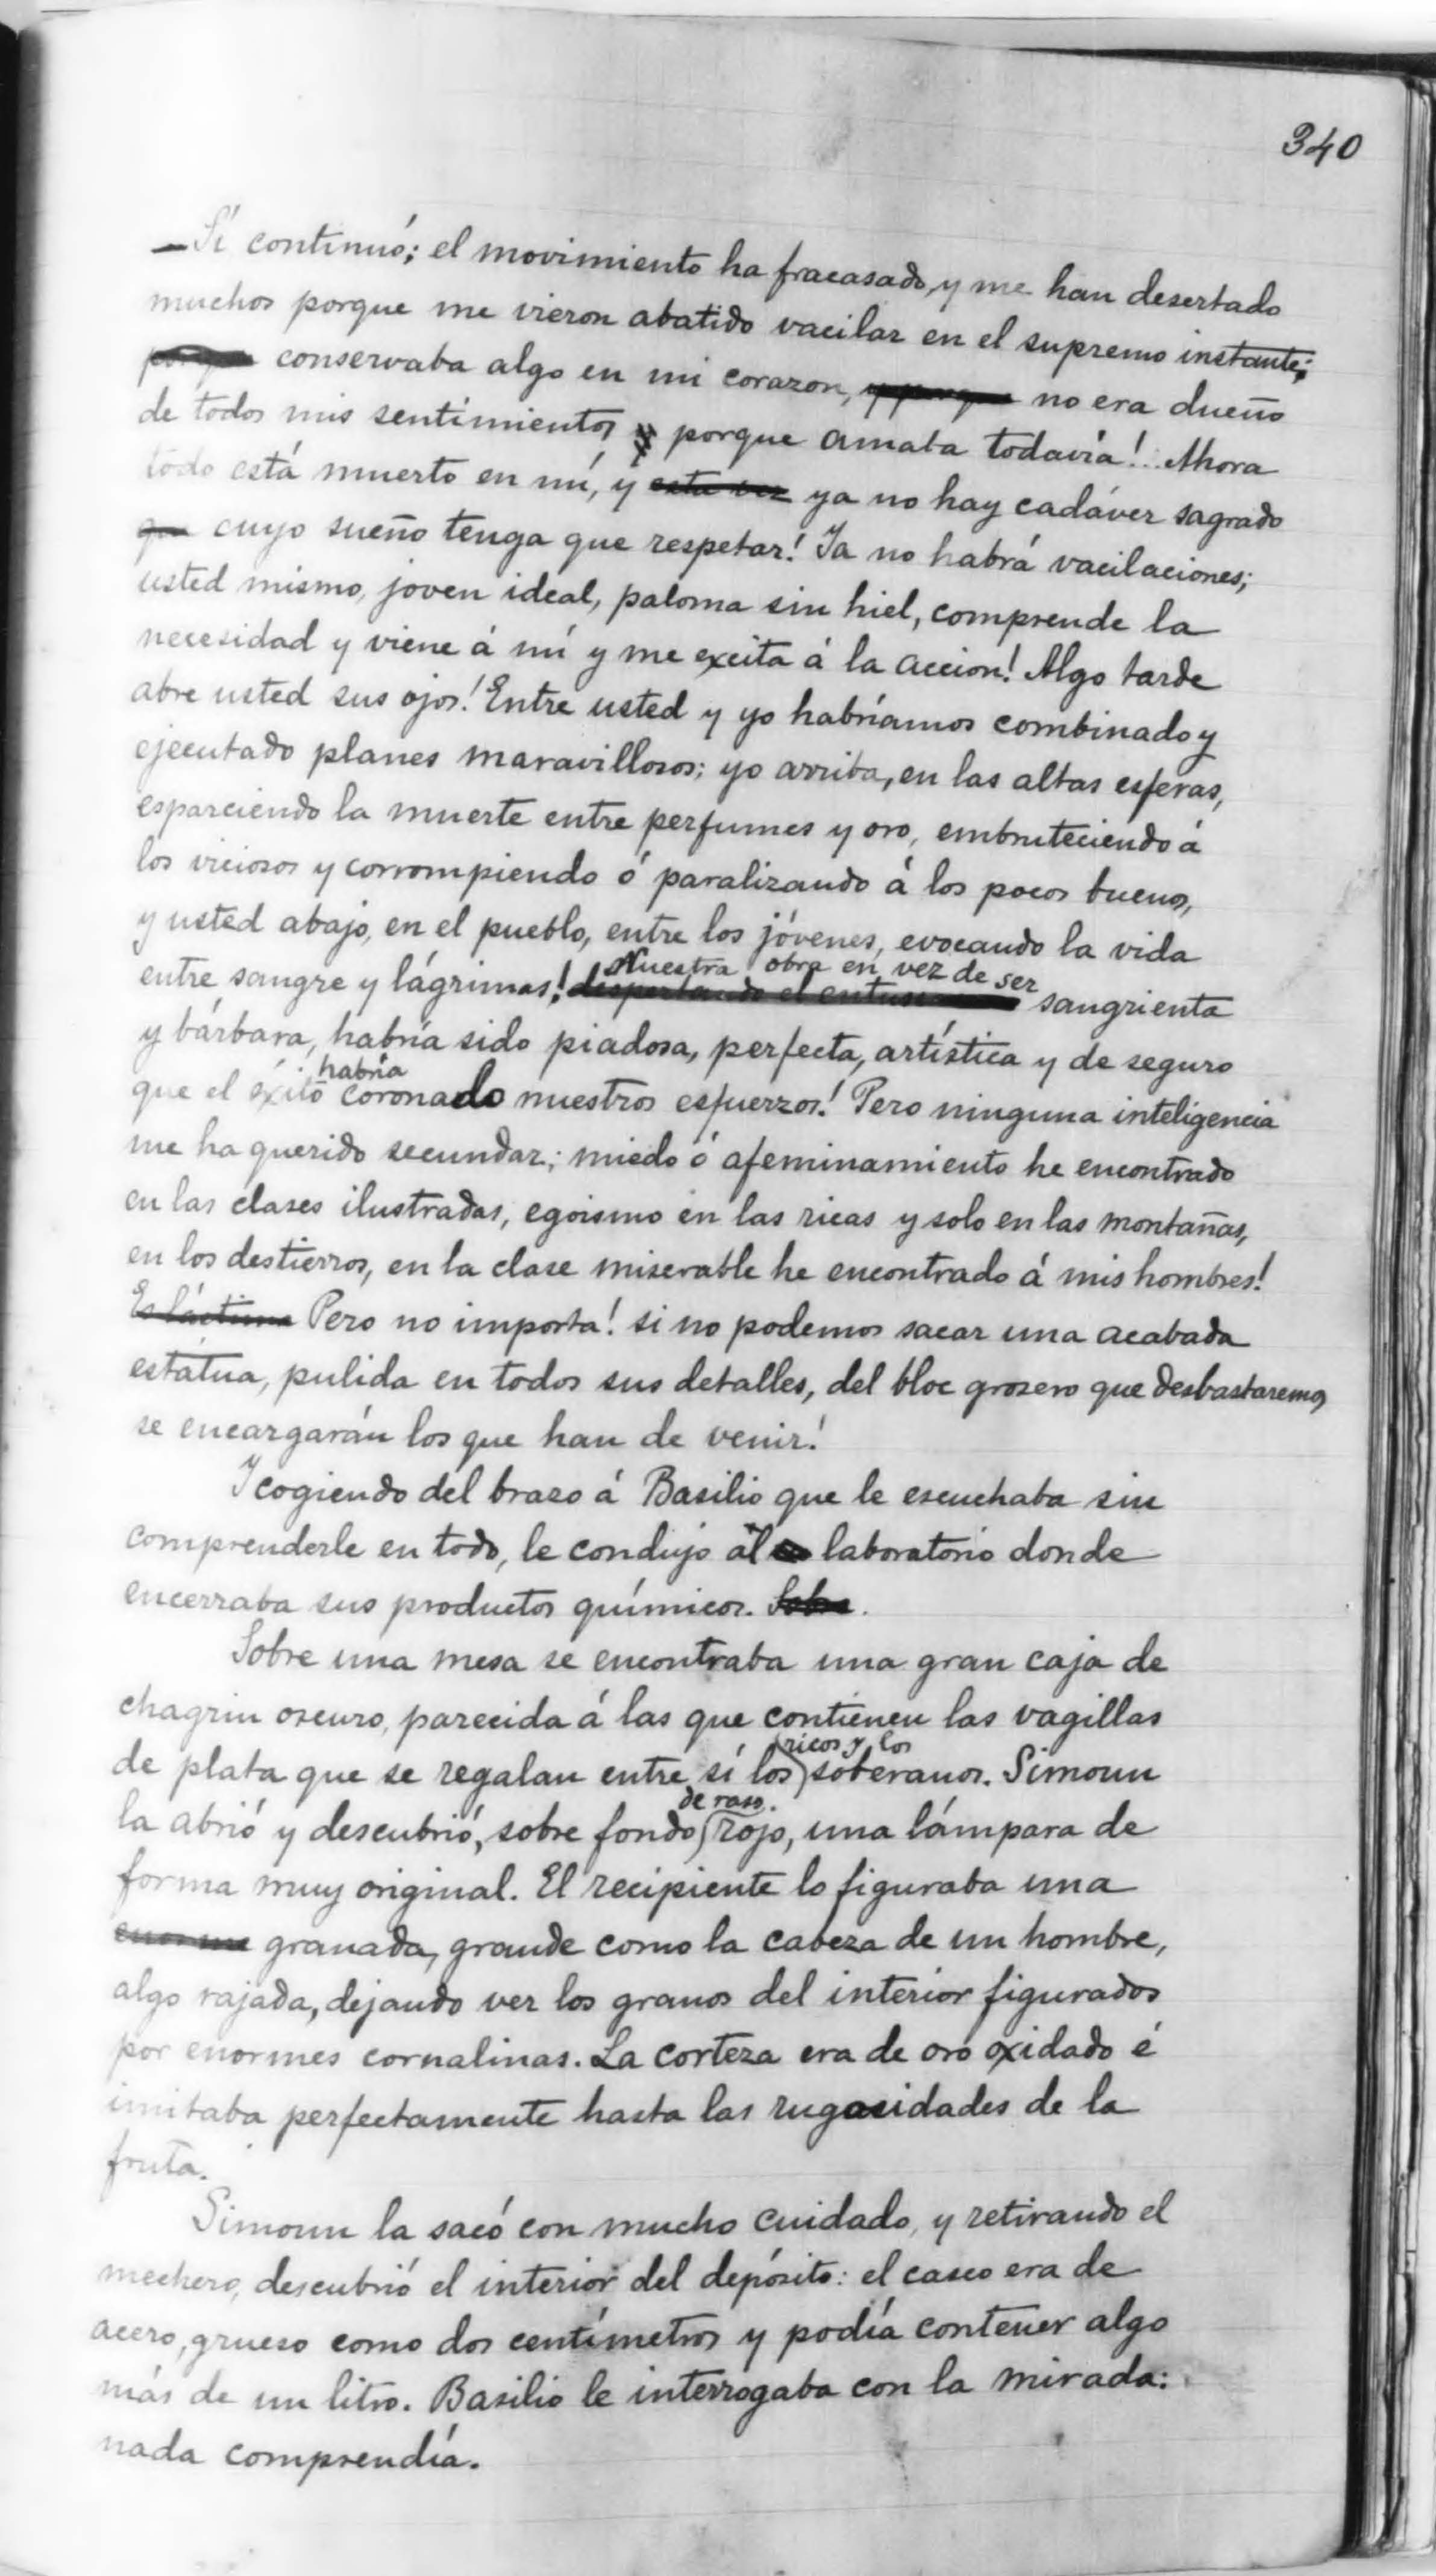 340
—Sí continuó; el movimiento ha fracasado, y me han desertado
muchos porque me vieron abatido vacilar en el supremo instante;
porque conservaba algo en mi corazon, y porque no era dueño
de todos mis sentimientos y porque amaba todavía!.. Ahora
todo está muerto en mí, y esta vez ya no hay cadáver sagrado
que cuyo sueño tenga que respetar! Ya no habrá vacilaciones;
usted mismo, joven ideal, paloma sin hiel, comprende la
necesidad y viene á mí y me excita á la accion! Algo tarde
abre usted sus ojos! Entre usted y yo habríamos combinado y
ejecutado planes maravillosos; yo arriba, en las altas esferas,
esparciendo la muerte entre perfumes y oro, embruteciendo á
los viciosos y corrompiendo ó paralizando á los pocos buenos,
y usted abajo, en el pueblo, entre los jóvenes, evocando la vida
Nuestra obra en vez de ser
entre sangre y lágrimas! despertando el sangrienta
y bárbara, habría sido piadosa, perfecta, artística y de seguro
habría
que el éxito coronado nuestros esfuerzos! Pero ninguna inteligencia
me ha querido secundar; miedo ó afeminamiento he encontrado
en las clases ilustradas, egoismo en las ricas y solo en las montañas,
en los destierros, en la clase miserable he encontrado á mis hombres!
Es lástima Pero no importa! si no podemos sacar una acabada
estátua, pulida en todos sus detalles, del bloc grosero que desbastaremos
se encargarán los que han de venir!
Y cogiendo del brazo á Basilio que le escuchaba sin
comprenderle en todo, le condujo al laboratorio donde
encerraba sus productos químicos. Sobre.
Sobre una mesa se encontraba una gran caja de
chagrin oscuro, parecida á las que contienen las vagillas
ricos y los
de plata que se regalan entre sí los soberanos. Simoun
de raso.
la abrió y descubrió, sobre fondo rojo, una lámpara de
forma muy original. El recipiente lo figuraba una
enorme granada, grande como la cabeza de un hombre,
algo rajada, dejando ver los granos del interior figurados
por enormes cornalinas. La corteza era de oro oxidado é
imitaba perfectamente hasta las rugosidades de la
fruta.
Simoun la sacó con mucho cuidado, y retirando el
mechero, descubrió el interior del depósito: el casco era de
acero, grueso como dos centímetros y podía contener algo
más de un litro. Basilio le interrogaba con la mirada:
nada comprendía.